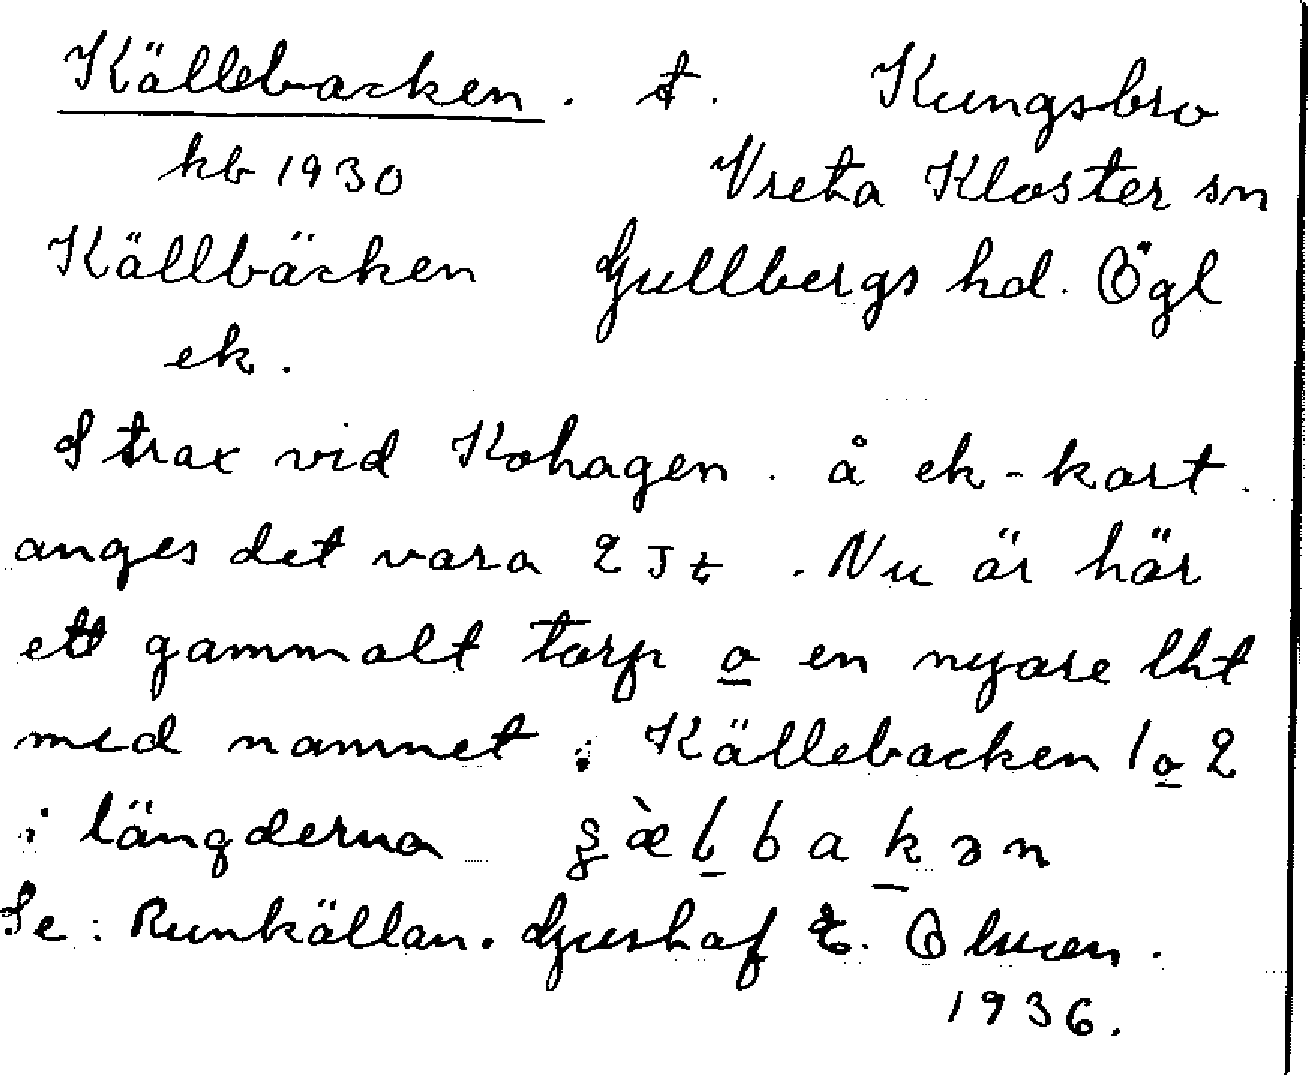 Källebacken. t. Kungsbro
kb 1930 Vreta Kloster sn
Källbäcken Gullbergs hd. Ögl
ek.
Strax vid Kohagen. å ek-kart.
anges det vara 2 Jt. Nu är här
ett gammalt torp o en nyare lht
med namnet. Källebacken 1 o 2
i längderna
Se: Runkällan. Gustaf
1936.